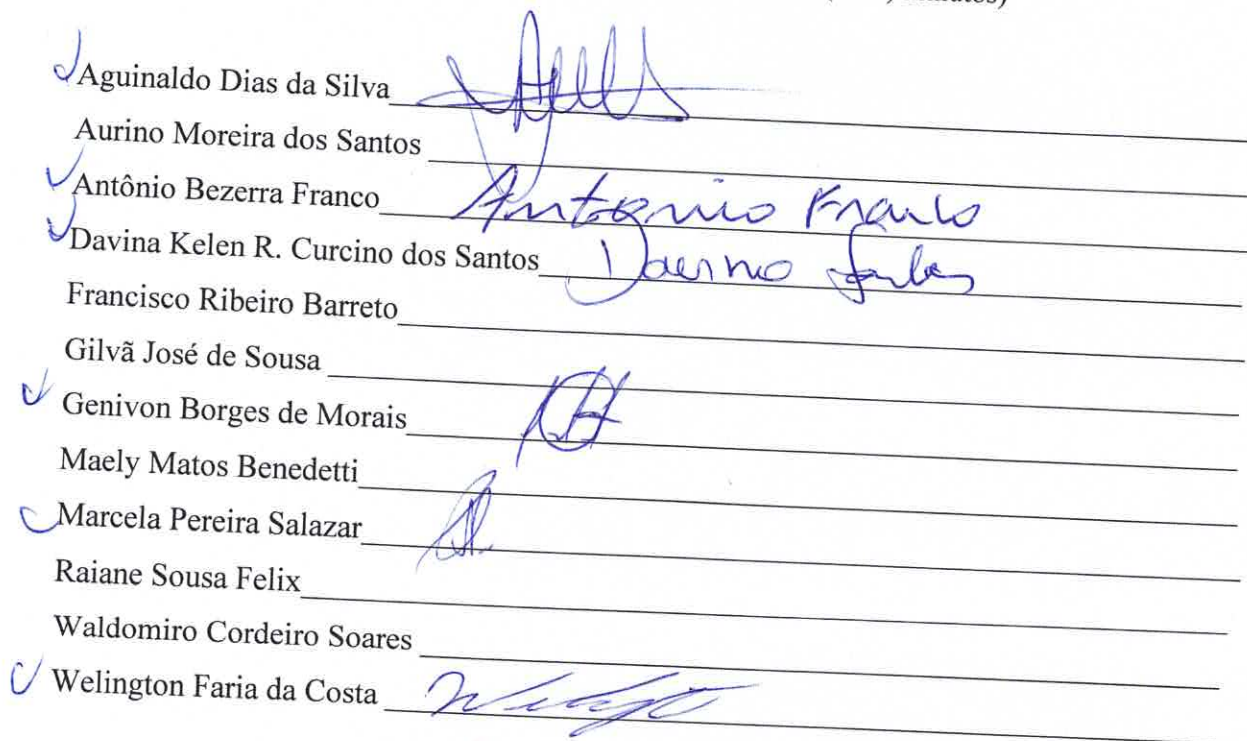 Aguinaldo Dias da Silva
Aurino Moreira dos Santos
Antônio Bezerra Franco Antonio Franco
Davina Kelen R. Curcino dos Santos
Francisco Ribeiro Barreto
Gilvã José de Sousa
Genivon Borges de Morais
Maely Matos Benedetti
Marcela Pereira Salazar
Raiane Sousa Felix
Waldomiro Cordeiro Soares
Welington Faria da Costa